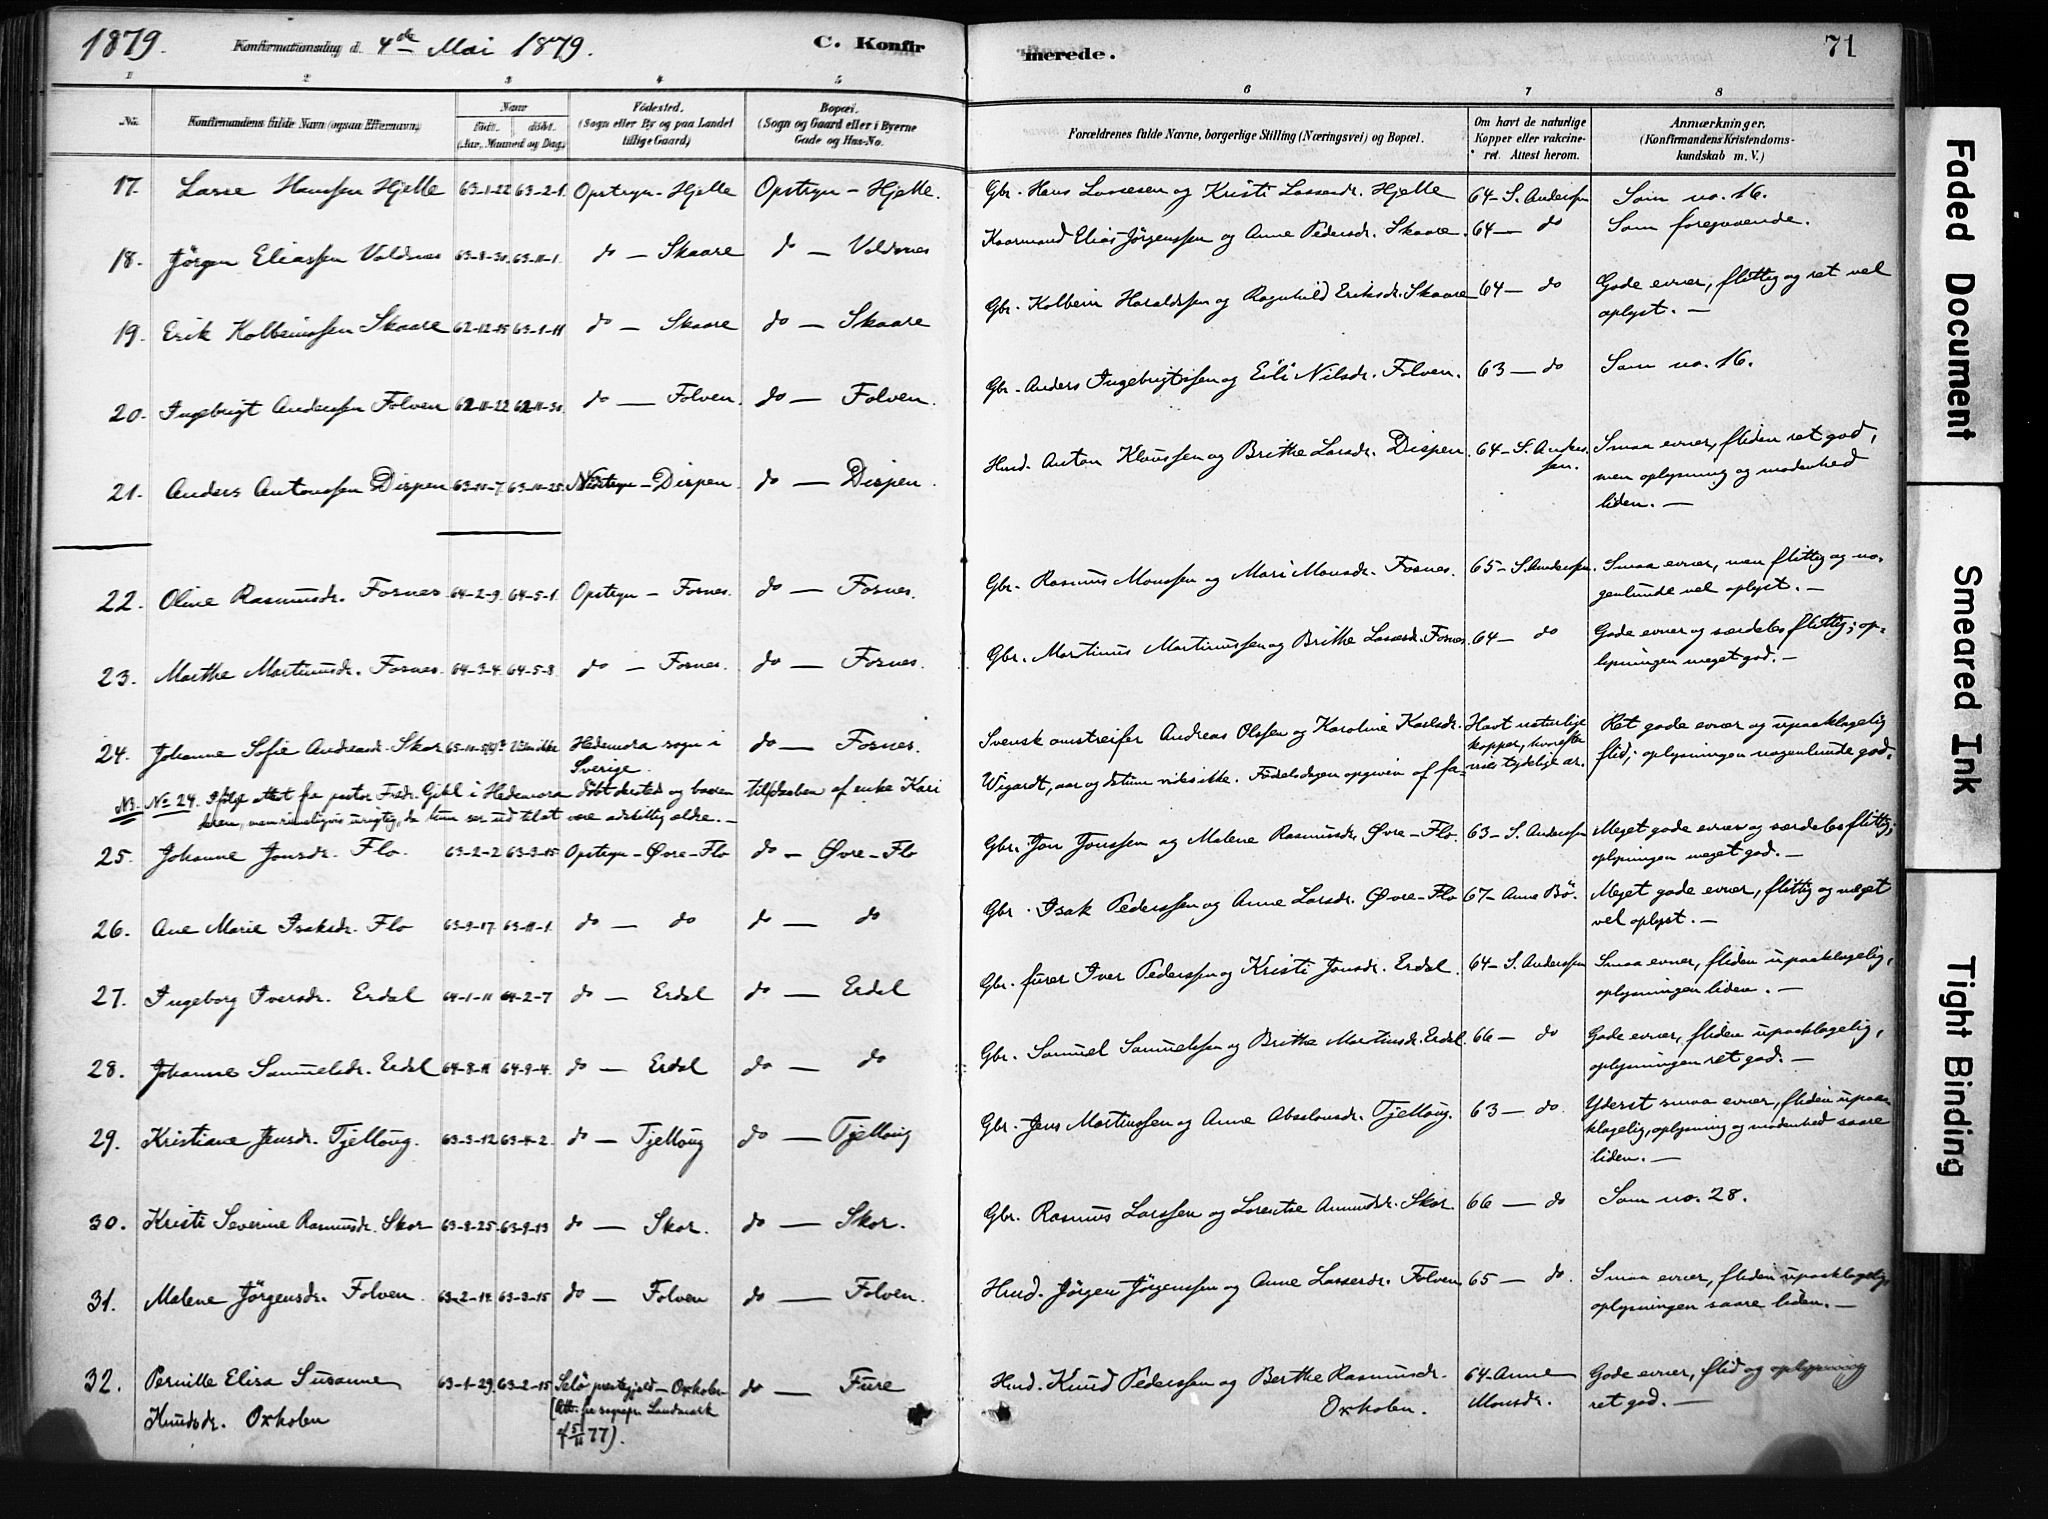 1879. Konfirmationsdag d. 4de Mai 1879. C. Konfirmerede. 71
1 2 3 4 5 6 7 8
No. Konfirmandens fulde Navn (ogsaa Efternavn) Naar født. døbt. (Aar, Maaned og Dag.) Födested. (Sogn eller By og paa Landet tillige Gaard) Bopæl. (Sogn og Gaard eller i Byerne Gade og Hus-No. Forældrenes fulde Navne, borgerlige Stilling (Næringsvei) og Bopæl. Om havt de naturlige Kopper eller vakcineret. Attest herom. Anmærkninger. (Konfirmandens Kristendomskundskab m. V.)
17. Lasse Hanssen Hjelle 63-1-22 63-2-1 Opstryn - Hjelle Opstryn - Hjelle. Gbr. Hans Lassesen og Kristi Lassesdr. Hjelle 64 - S. Anderssen Som no. 16.
18. Jörgen Eliassen Voldsnes 63-8-30 63-11-1. do - Skaare do - Voldsnes Kaarmand Elias Jörgenssen og Anne Pedersdr. Skaare. 64 - do Som foregaaende.
19. Erik Kolbeinssen Skaare 62-12-15 63-1-11 do - Skaare do - Skaare Gbr. Kolbein Haraldssen og Ragnhild Eriksdr. Skaare 64 - do Gode evner, flittig og ret vel
oplyst. -
20. Ingebrigt Anderssen Folven 62-11-22 62-11-30 do - Folven. do - Folven. Gbr. Anders Ingebrigtssen og Eli Nilsdr. Folven. 63 - do Som no. 16.
21. Anders Antonssen Dispen 63-10-7 63-10-25 Nedstryn - Dispen. do - Dispen. Husd. Anton Klaussen og Brithe Larsdr. Dispen. 64 - S. Anderssen. Smaa evner, fliden ret god,
men oplysning og modenhed
liden. -
22. Oline Rasmusdr. Fosnes 64-2-9. 64-5-1. Opstryn - Fosnes. do - Fosnes. Gbr. Rasmus Monssen og Mari Monsdr. Fosnes. 65 - S. Anderssen. Smaa evner, men flittig og no-
genlunde vel oplyst. -
23. Marthe Martinusdr. Fosnes. 64-3-4. 64-5-8. do - Fosnes. do - Fosnes. Gbr. Martinus Martinussen og Brithe Lassesdr. Fosnes. 64 - do Gode evner og særdeles flittig; op-
lysningen meget god. -
24. Johanne Sofie Andreasdr. Skar Hedemora sogn i do - Fosnes. Svensk omstreifer Andreas Olssen og Karoline Karlsdr. Havt naturlige Ret gode evner og upaaklagelig
Sverige. Wigardt, aar og datum vides ikke. Fødselsdagen opgiven af fa- kopper, hvorefter flid; oplysningen nogenlunde god.
NB. No 24. Ifølge attest fra pastor Fredr. i Hedemora døbt dersteds og baaren til daaben af enke Kari
deren, men rimeligvis urigtig, da hun ser ud til at være adskillig ældre. -
25. Johanne Jonsdr. Flo. 63-2-2 63-3-15 Opstryn - Øvre-Flo do - Øvre-Flo Gbr. Jon Jonssen og Malene Rasmusdr. Øvre-Flo. 63 - S. Anderssen Meget gode evner og særdeles flittig;
oplysningen meget god. -
26. Ane Marie Isaksdr. Flo 63-9-17. 63-11-1. do - do do - do Gbr. Isak Pederssen og Anne Larsdr. Øvre-Flo 67 - Anne Bö. Meget gode evner, flittig og meget
vel oplyst. -
27. Ingeborg Iversdr. Erdal 64-1-11 64-2-7 do - Erdal do - Erdal Gbr. furer Iver Pederssen og Kristi Jonsdr. Erdal. 64 - S. Anderssen Smaa evner, fliden upaaklagelig,
oplysningen liden. -
28. Johanne Samuelsdr. Erdal 64-8-11 64-9-4. do - Erdal do - do Gbr. Samuel Samuelssen og Brithe Martinsdr. Erdal. 66 - do Gode evner, fliden upaaklagelig,
oplysningen ret god. -
29. Kristiane Jensdr. Tjellaug. 63-3-12 63-4-2. do - Tjellaug do - Tjellaug Gbr. Jens Martinssen og Anne Absalonsdr. Tjellaug. 63 - do. Yderst smaa evner, fliden upaa-
klagelig, oplysning og modenhed saare
liden. -
30. Kristi Severine Rasmusdr. Skor 63-8-25 63-9-13 do - Skor. do - Skor. Gbr. Rasmus Larssen og Lorentse Amundsdr. Skor. 66 - do Som no. 28.
31. Malene Jörgensdr. Folven. 63-2-14 63-3-15 do - Folven do - Folven. Husd. Jörgen Jörgenssen og Anne Lassesdr. Folven 65 - do. Smaa evner, fliden upaaklagelig,
oplysningen saare liden. -
32. Pernille Elisa Susanne 63-1-29. 63-2-15 Selö prestegjeld - Oxholen do - Fure Husd. Knud Pederssen og Berthe Rasmusdr. 64 - Anne Gode evner, flid og oplysning
Knudsdr. Oxholen (Att. fra sognepr. Landmark Oxholen. Monsdr. ret god. -
af 5/11 77).
Faded Document
Smeared Ink
Tight Binding